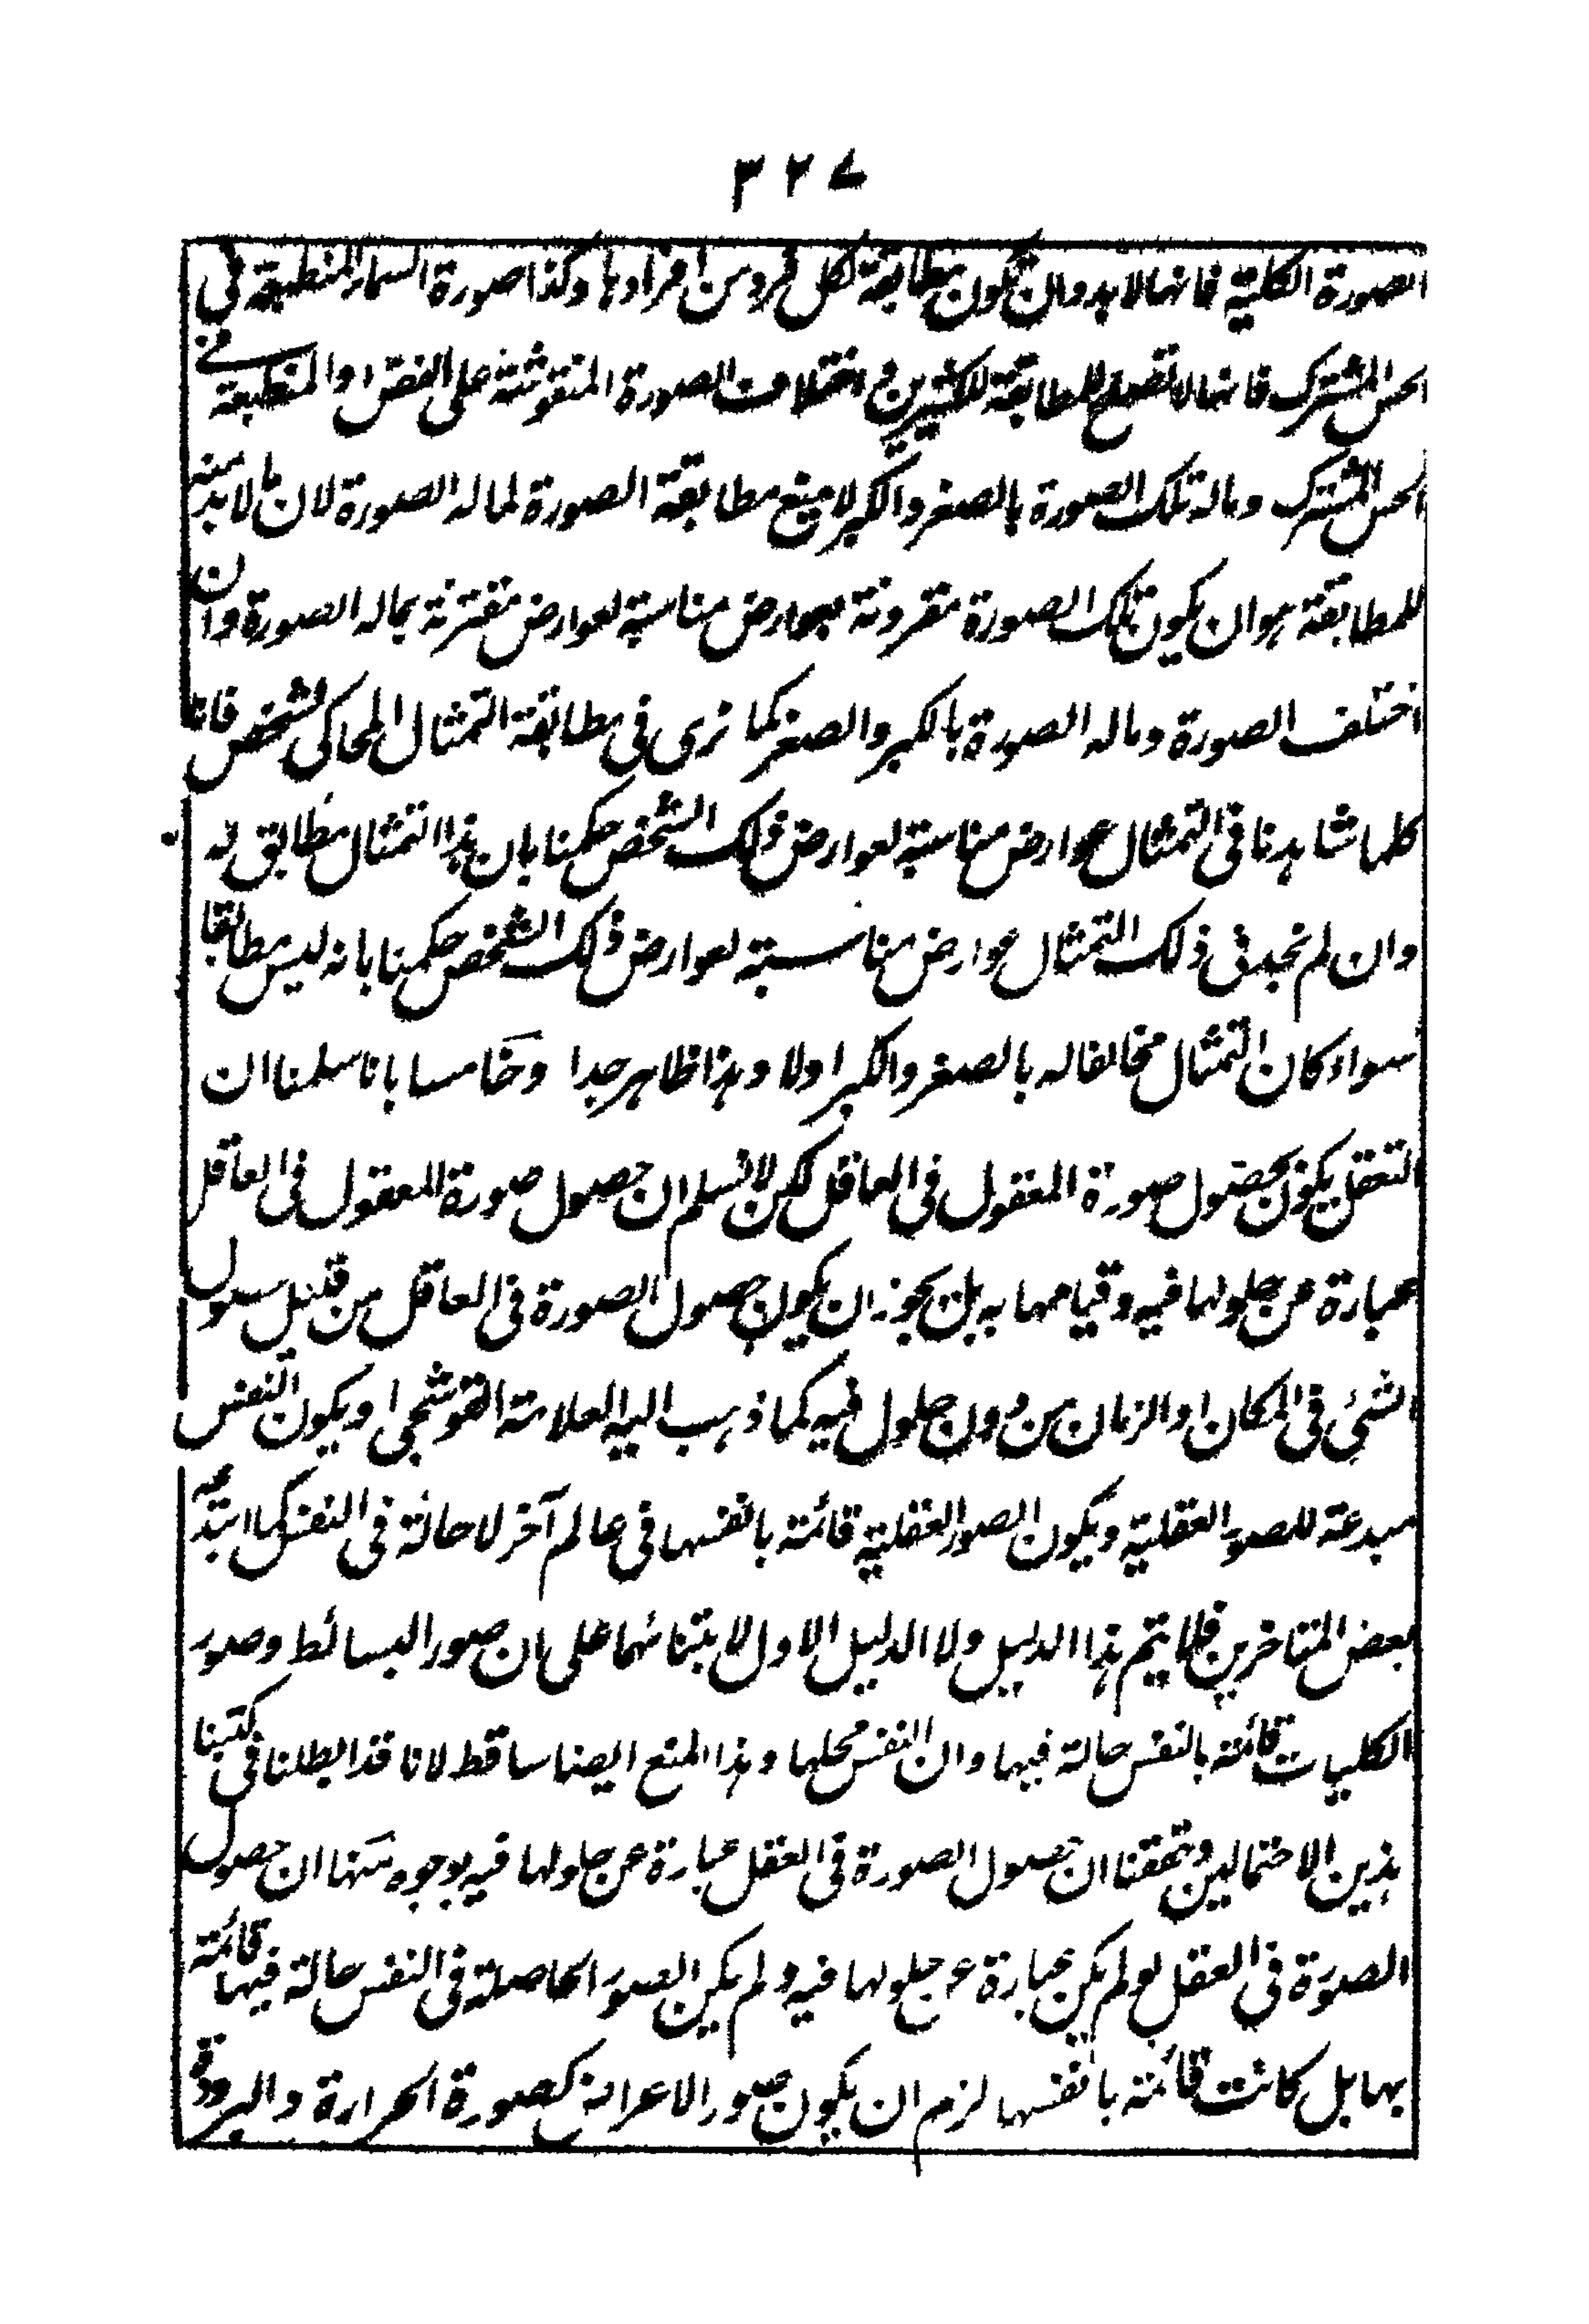 ٣٢٧
الصورة الكلية فانها لابد وان تكون مطابقة لكل فرد من افرادها وكذا صورة السماء المنطبعة فى
الحس المشترك فانها لا تصلح للمطابقة للكثيرين و اختلاف الصورة المنقوشة على الفص او المنطبعة فى
الحس المشترك وماله تلك الصورة بالصغر والكبر لا يمنع مطابقة الصورة لماله الصورة لان ما لابد منه
للمطابقة هو ان يكون تلك الصورة مقرونة بعوارض مناسبة لعوارض مقترنة بماله الصورة وان
اختلف الصورة وماله الصورة بالكبر والصغر كما نرى فى مطابقة التمثال المحاكى لشخص فانا
كلما شاهدنا فى التمثال عوارض مناسبة لعوارض ذلك الشخص حكمنا بان هذا التمثال مطابق له
وان لم نجد فى ذلك التمثال عوارض مناسبة لعوارض ذلك الشخص حكمنا بانه ليس مطابقا
سواء كان التمثال مخالفا له بالصغر والكبر اولا وهذا ظاهر جدا وخامسا بانا سلمنا ان
التعقل يكون بحصول صورة المعقول فى العاقل لكن لا نسلم ان حصول صورة المعقول فى العاقل
عبارة عن حلولها فيه وقيامها به بل يجوز ان يكون حصول الصورة فى العاقل من قبيل حصول
الشئ فى المكان او الزمان من دون حلول فيه كما ذهب اليه العلامة القوشجى او يكون النفس
مبدعة للصور العقلية ويكون الصور العقلية قائمة بانفسها فى عالم آخر لا حالة فى النفس كما ابتدعه
بعض المتاخرين فلا يتم هذا الدليل ولا الدليل الاول لابتنائهما على ان صور البسائط وصور
الكليات قائمة بالنفس حالة فيها وان النفس محلها وهذا المنع ايضا ساقط لانا قد ابطلنا فى كتبنا
هذين الاحتمالين وتحققنا ان حصول الصورة فى العقل عبارة عن حلولها فيه بوجوه منها ان حصول
الصورة فى العقل لو لم يكن عبارة عن حلولها فيه ولم يكن الصور الحاصلة فى النفس حالة فيها قائمة
بها بل كانت قائمة بانفسها لزم ان يكون صور الاعراض كصورة الحرارة والبرودة